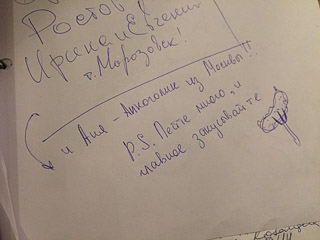 Ростов
Ирина и Евгений
г. Морозовск!
и Аня - Алкоголик из Москвы!!
P.S. Пейте много, и
главное закусывайте